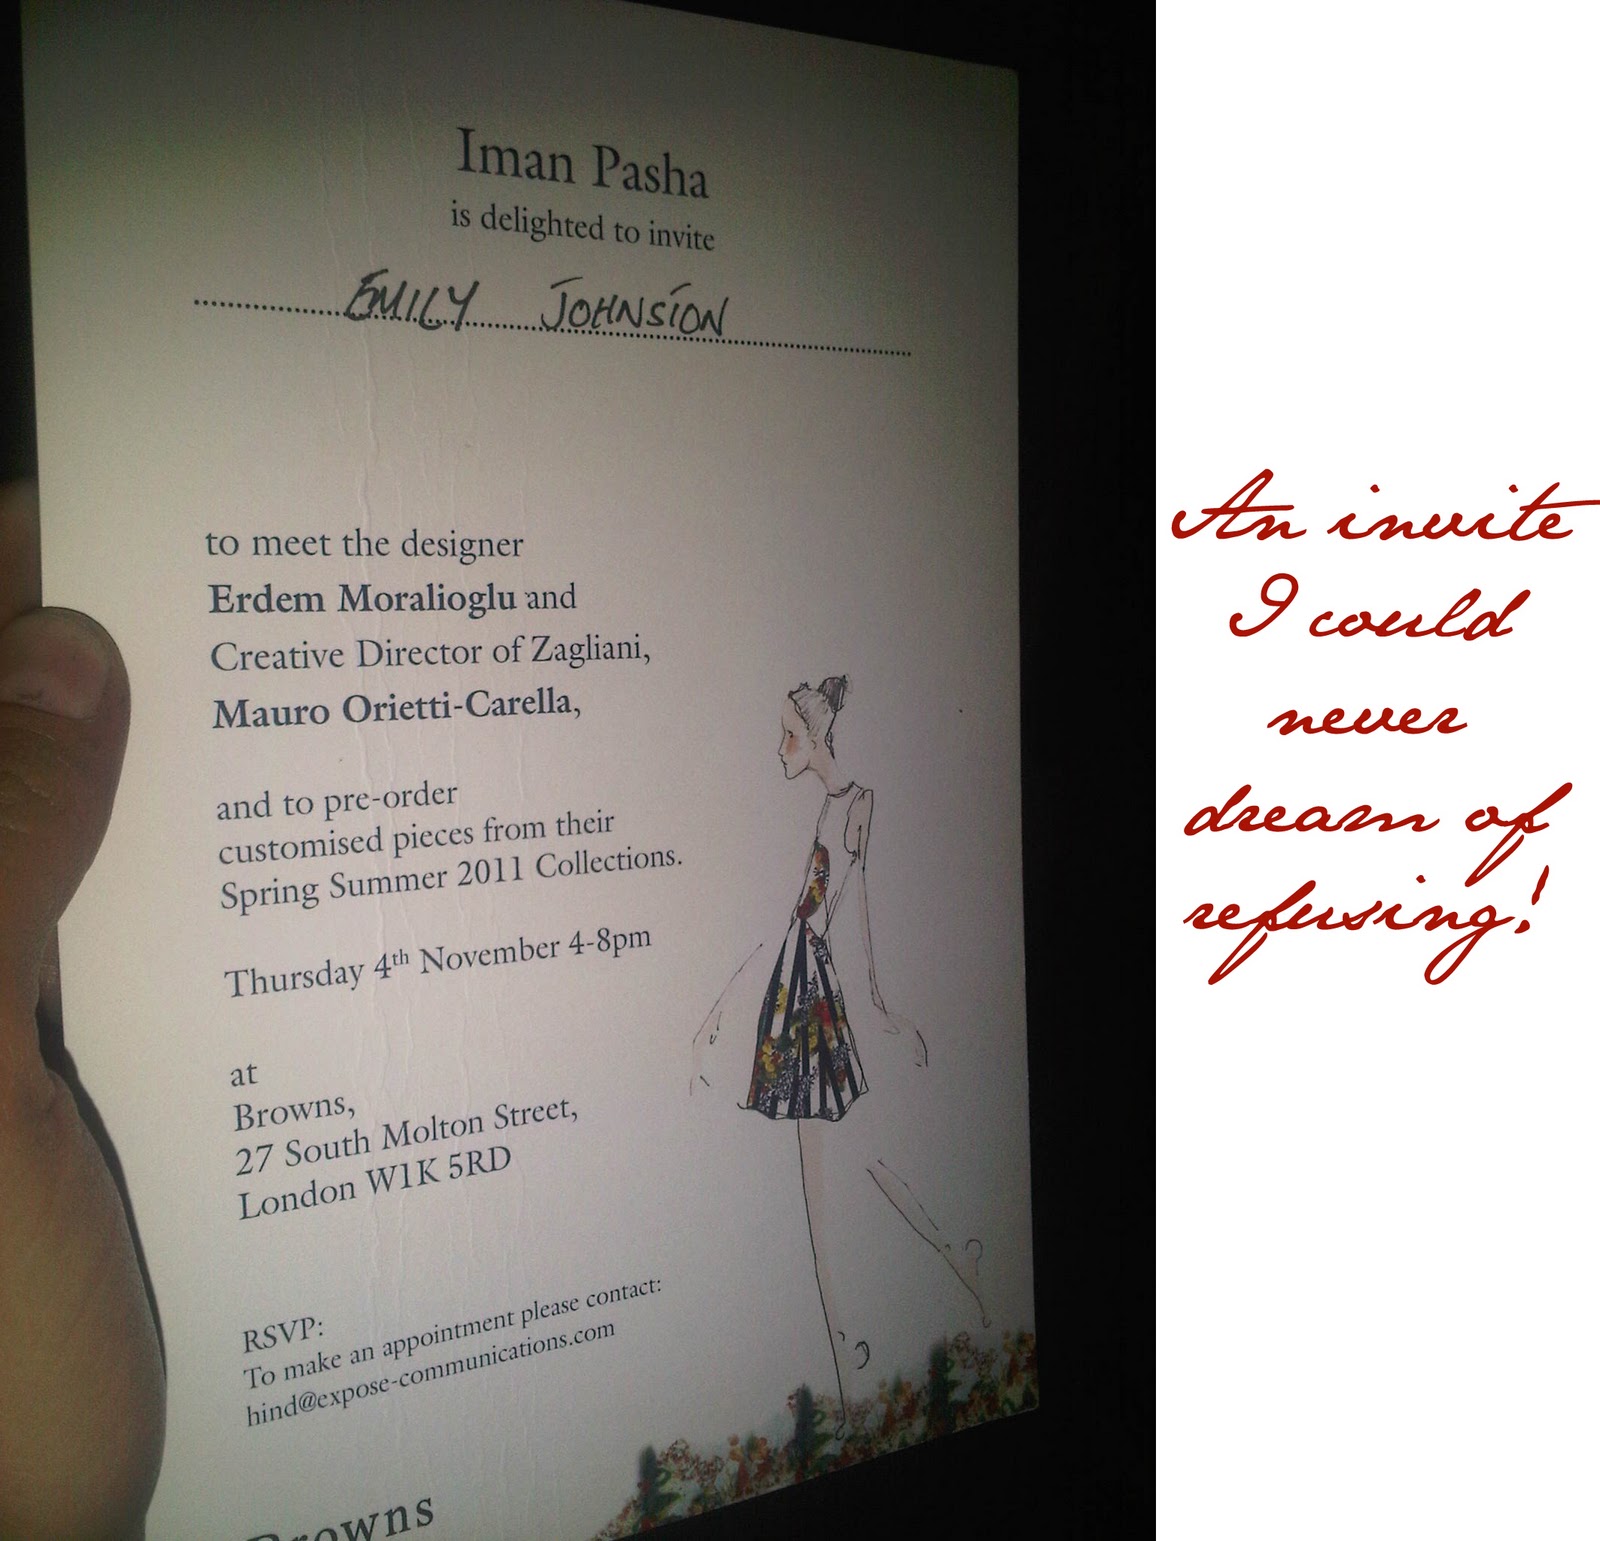 Iman Pasha
is delighted to invite
EMILY JOHNSTON
to meet the designer
Erdem Moralioglu and
Creative Director of Zagliani,
Mauro Orietti-Carella,
and to pre-order
customised pieces from their
Spring Summer 2011 Collections.
Thursday 4th November 4-8pm
at
Browns,
27 South Molton Street,
London W1K 5RD
RSVP:
To make an appointment please contact:
hind@expose-communications.com
Browns
An invite
I could
never
dream of
refusing!